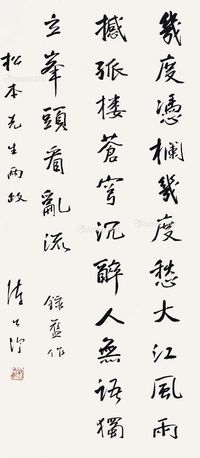 幾度憑欄幾度愁大江風雨
撼孤楼蒼穹沉醉人無語獨
立峯頭看亂流
錄舊作
松本先生兩政